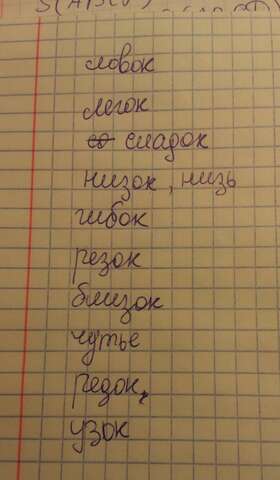 ловок
легок
сладок
низок, низь
гибок
резок
близок
чутье
редок,
узок